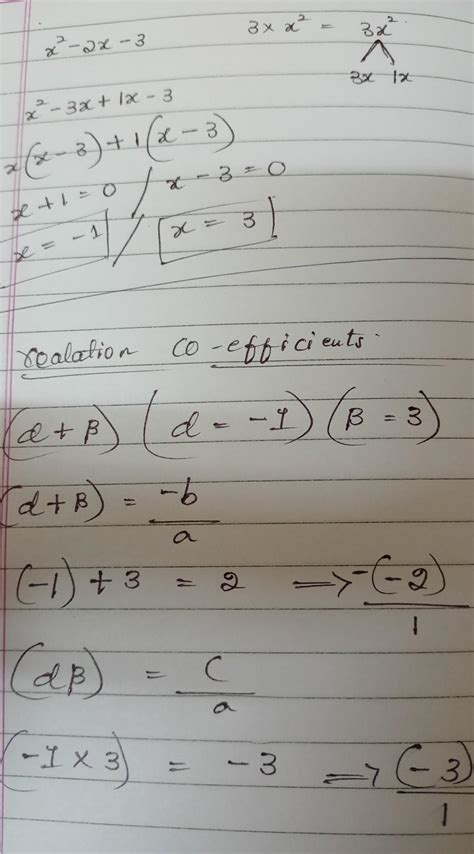 x² - 2x - 3
3 × x² = 3x²
3x 1x
x² - 3x + 1x - 3
x(x - 3) + 1(x - 3)
x + 1 = 0 / x - 3 = 0
x = -1 / x = 3
roalation co-efficients.
(α + β) (α = -1) (β = 3)
(α + β) = -b/a
(-1) + 3 = 2 ⟹ -(-2)/1
(αβ) = C/a
(-1 × 3) = -3 ⟹ (-3)/1